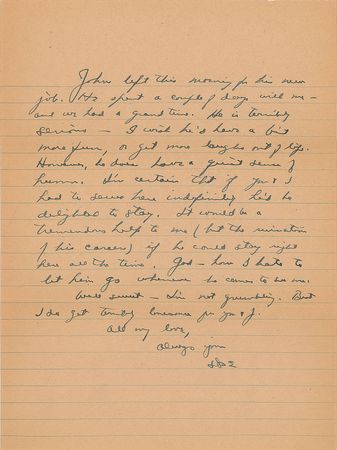 John left this morning for his new
job. He spent a couple of days with me -
and we had a grand time. He is terribly
serious - I wish he'd have a bit
more fun, or get more laughs out of life.
However, he does have a quiet sense of
humor. I'm certain that if you & I
had to serve here indefinitely he'd be
delighted to stay. It would be a
tremendous help to me (but the ruination
of his career) if he could stay right
here all the time. God - how I hate to
let him go whenever he comes to see me.
Well sweet - I'm not grumbling. But
I do get terribly lonesome for you & J.
All my love,
Always your